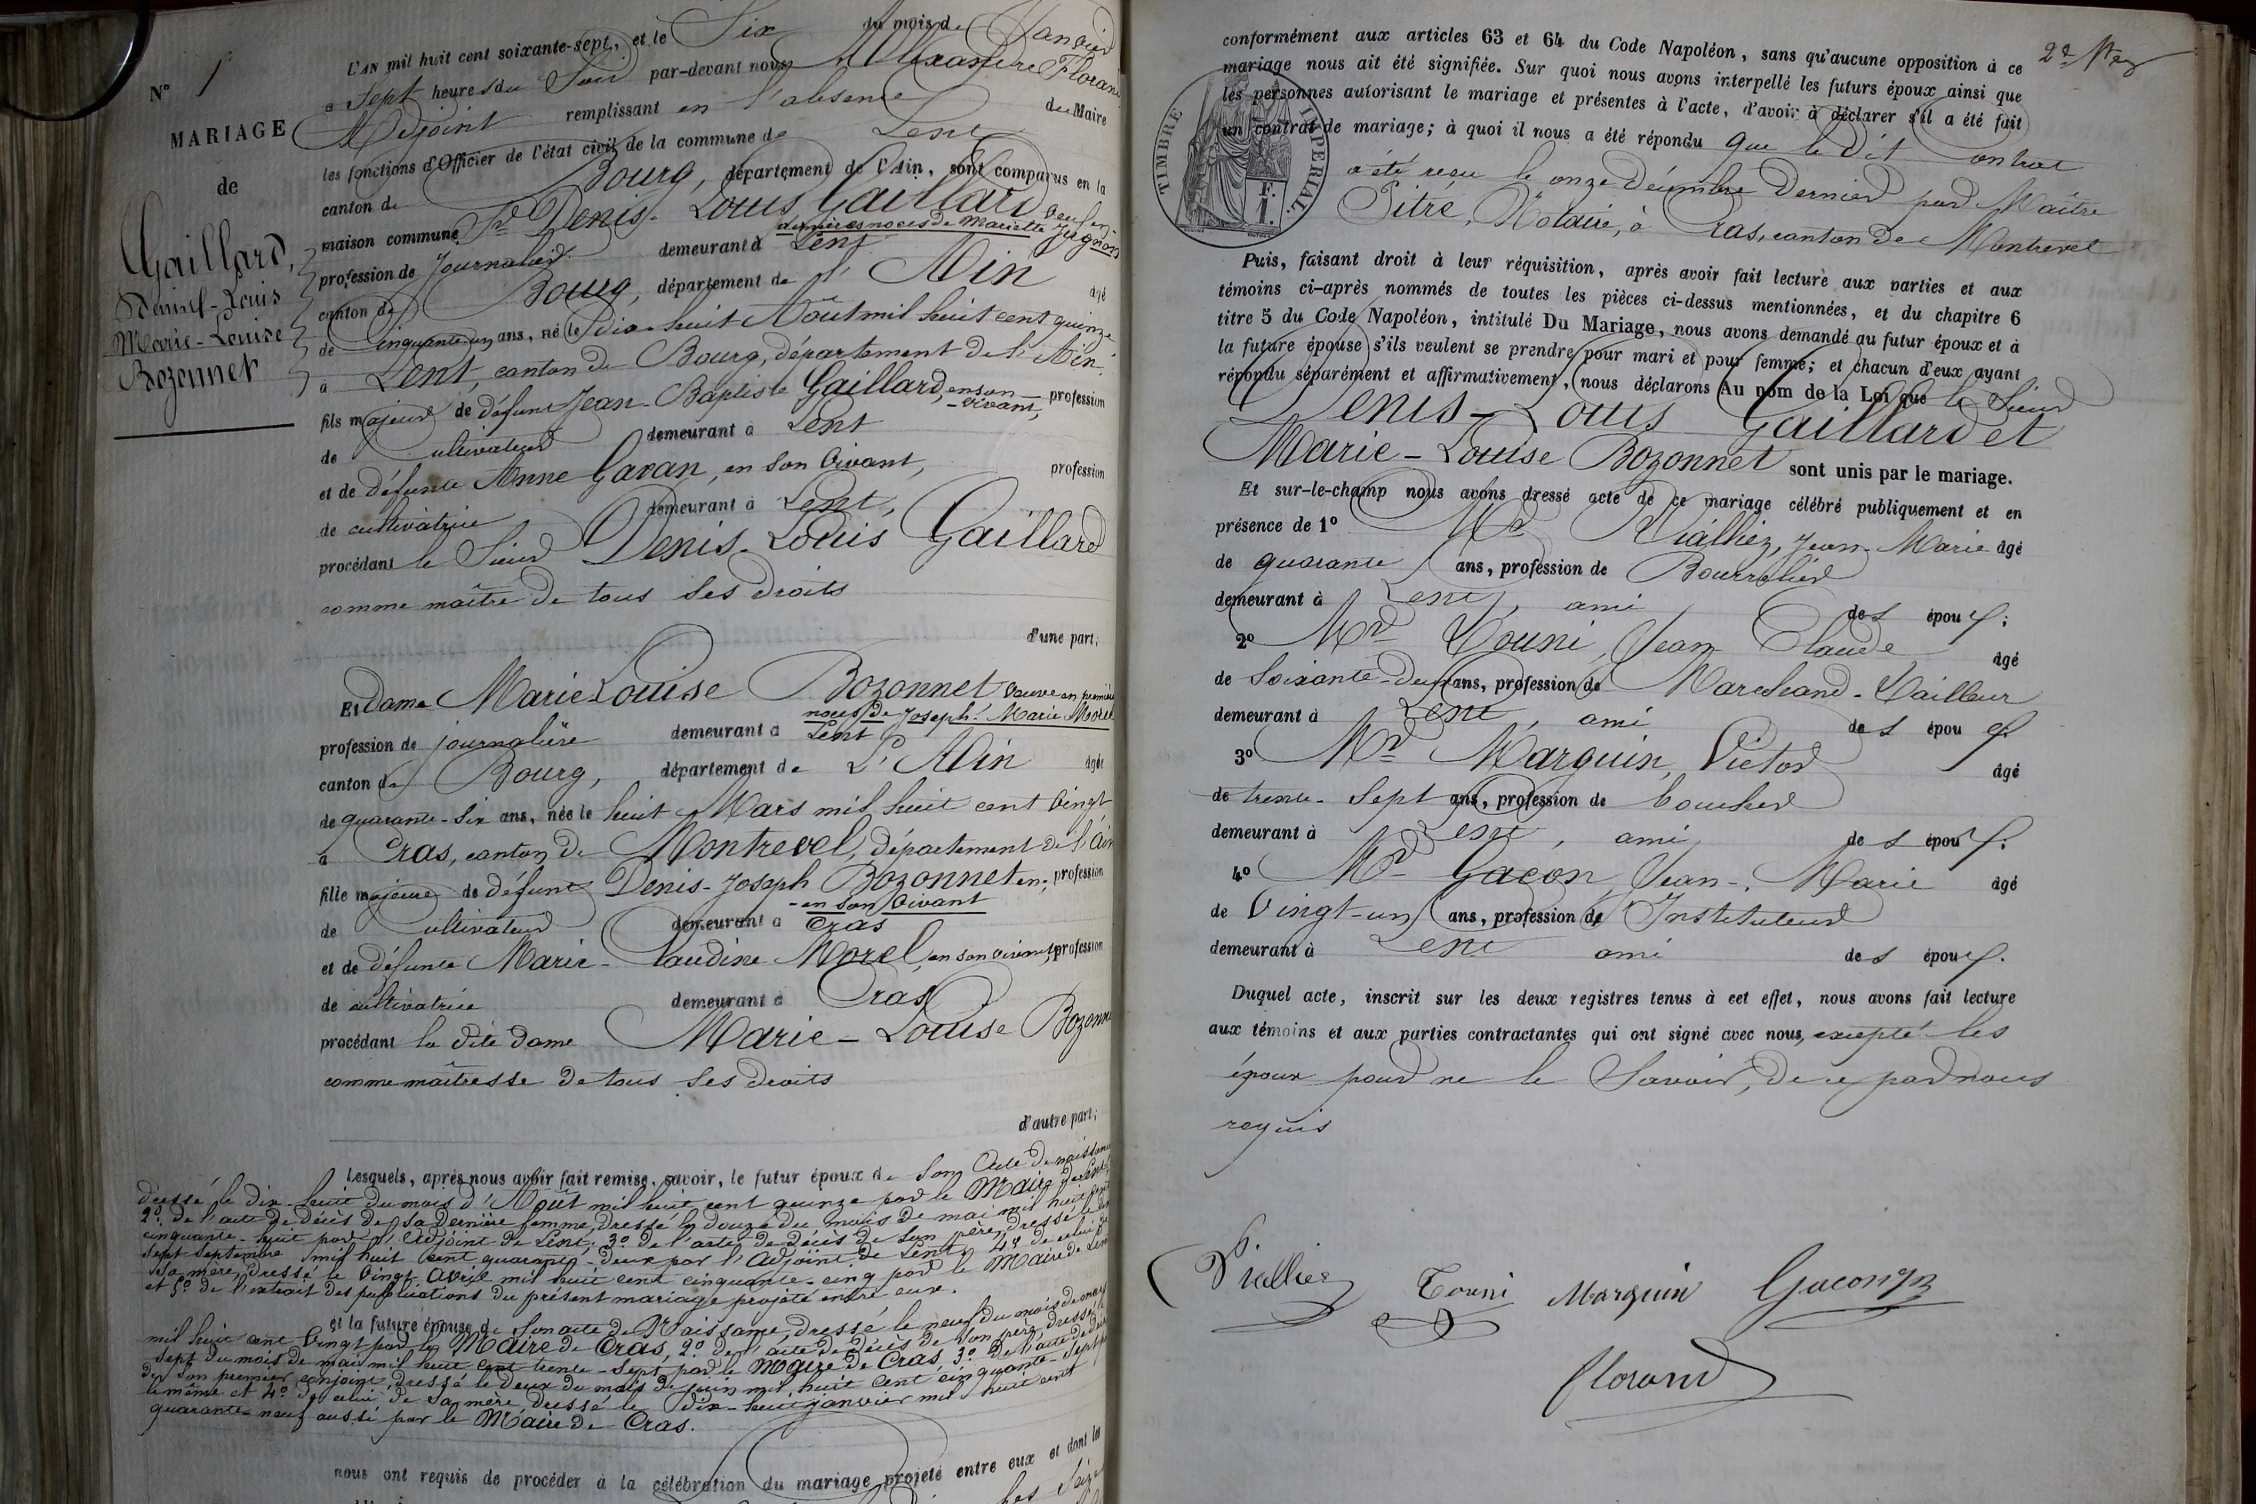 N° 1
MARIAGE
de
Gaillard,
Denis-Louis
Marie-Louise
Bozonnet
L'AN mil huit cent soixante-sept, et le Six du mois de Janvier
a Sept heures du Soir par-devant nous Allexandre Florand
Adjoint remplissant en l'absence du Maire
les fonctions d'Officier de l'état civil de la commune de Lent
canton de Bourg, département de l'Ain, sont comparus en la
maison commune Sr Denis-Louis Gaillard veuf en
dernières noces de Mariette
profession de Journalier demeurant à Lent
canton de Bourg, département de l'Ain âgé
de Cinquante-un ans, né le dix-huit Août mil huit cent quinze
à Lent, canton de Bourg, département de l'Ain.
fils majeur de défunt Jean-Baptiste Gaillard, en son vivant, profession
de Cultivateur demeurant à Lent
et de défunte Anne Gavan, en son vivant, profession
de cultivatrice demeurant à Lent,
procédant le Sieur Denis-Louis Gaillard
comme maître de tous ses droits
d'une part;
Et Dame Marie Louise Bozonnet veuve en première
noces de Joseph-Marie Morel
profession de journalière demeurant à Lent
canton de Bourg, département de L'Ain âgée
de quarante-six ans, née le huit Mars mil huit cent vingt
à Cras, canton de Montrevel, département de l'Ain
fille majeure de défunt Denis-Joseph Bozonnet en profession
-en son vivant
de Cultivateur demeurant à Cras
et de défunte Marie-Claudine Morel, en son vivant, profession
de cultivatrice demeurant à Cras
procédant la dite dame Marie-Louise Bozonne
comme maîtresse de tous ses droits
d'autre part;
Lesquels, après nous avoir fait remise, savoir, le futur époux de son Acte de naissance
dressé le dix-huit du mois d'Août mil huit cent quinze par le Maire de Lent
2° de l'acte de décès de sa dernière femme, dressé le douze du mois de mai mil huit cent
cinquante-huit par l'Adjoint de Lent; 3° de l'acte de décès de son père, dressé le
sept Septembre mil huit cent quarante-deux par l'Adjoint de Lent; 4° de celui de
sa mère, dressé le vingt Avril mil huit cent cinquante-cinq par le Maire de Lent
et 5° de l'extrait des publications du présent mariage projeté entre eux.
et la future épouse de son acte de Naissance, dressé le neuf du mois de mars
mil huit cent vingt par le Maire de Cras, 2° de l'acte de décès de son père, dressé le
sept du mois de mai mil huit cent trente-sept par le Maire de Cras, 3° de l'acte de décès
de son premier conjoint, dressé le deux du mois de juin mil huit cent cinquante-sept par
le même et 4° de celui de sa mère, dressé le dix-huit janvier mil huit cent
quarante-neuf aussi par le Maire de Cras.
nous ont requis de procéder à la célébration du mariage projeté entre eux et dont les
2e Rer
TIMBRE IMPERIAL
conformément aux articles 63 et 64 du Code Napoléon, sans qu'aucune opposition à ce
mariage nous ait été signifiée. Sur quoi nous avons interpellé les futurs époux ainsi que
les personnes autorisant le mariage et présentes à l'acte, d'avoir à déclarer s'il a été fait
un contrat de mariage; à quoi il nous a été répondu que le dit Contrat
a été reçu le onze décembre dernier par Maître
Pitré, Notaire, à Cras, canton de Montrevel
Puis, faisant droit à leur réquisition, après avoir fait lecture aux parties et aux
témoins ci-après nommés de toutes les pièces ci-dessus mentionnées, et du chapitre 6
titre 5 du Code Napoléon, intitulé Du Mariage, nous avons demandé au futur époux et à
la future épouse s'ils veulent se prendre pour mari et pour femme; et chacun d'eux ayant
répondu séparément et affirmativement, nous déclarons Au nom de la Loi que le Sieur
Denis-Louis Gaillard et
Marie-Louise Bozonnet sont unis par le mariage.
Et sur-le-champ nous avons dressé acte de ce mariage célébré publiquement et en
présence de 1° Mr Vialliez, Jean-Marie âgé
de quarante ans, profession de Bourrelier
demeurant à Lent, ami des époux.
2° Mr Touni, Jean Claude âgé
de Soixante-deux ans, profession de Marchand-Tailleur
demeurant à Lent, ami des époux
3° Mr Marguin, Victor âgé
de trente-sept ans, profession de boucher
demeurant à Lent, ami des époux.
4° Mr Gacon, Jean-Marie âgé
de vingt-un ans, profession de Instituteur
demeurant à Lent ami des époux.
Duquel acte, inscrit sur les deux registres tenus à cet effet, nous avons fait lecture
aux témoins et aux parties contractantes qui ont signé avec nous, excepté les
époux pour ne le Savoir, de ce par nous
requis
Viallier Touni Marguin Gacon
Florand